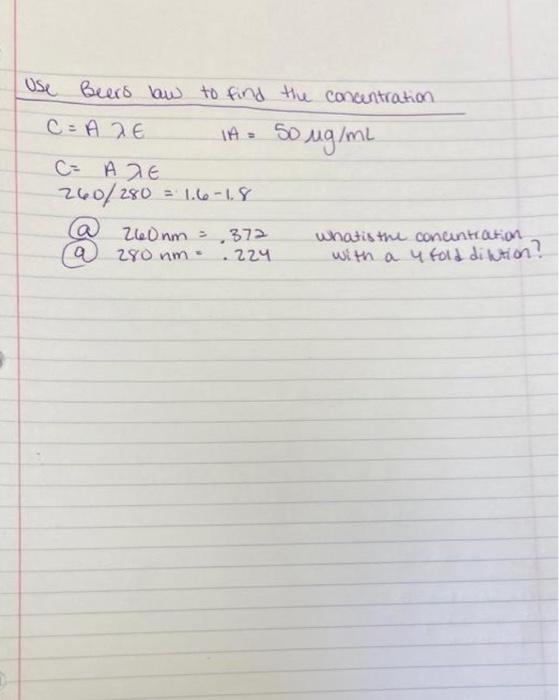 Use Beers law to find the concentration
C = A λ ε 1A = 50 μg/mL
C = A λ ε
260/280 = 1.6-1.8
@ 260nm = .372 what is the concentration
@ 280 nm = .224 with a 4 fold dilution?